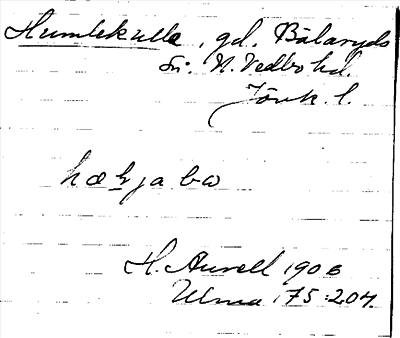 Humlekulla, gd. Bälaryds
sn. N. Vedbo hd.
Jönk. l.
H. Aurell 1906
Ulma 175:204.